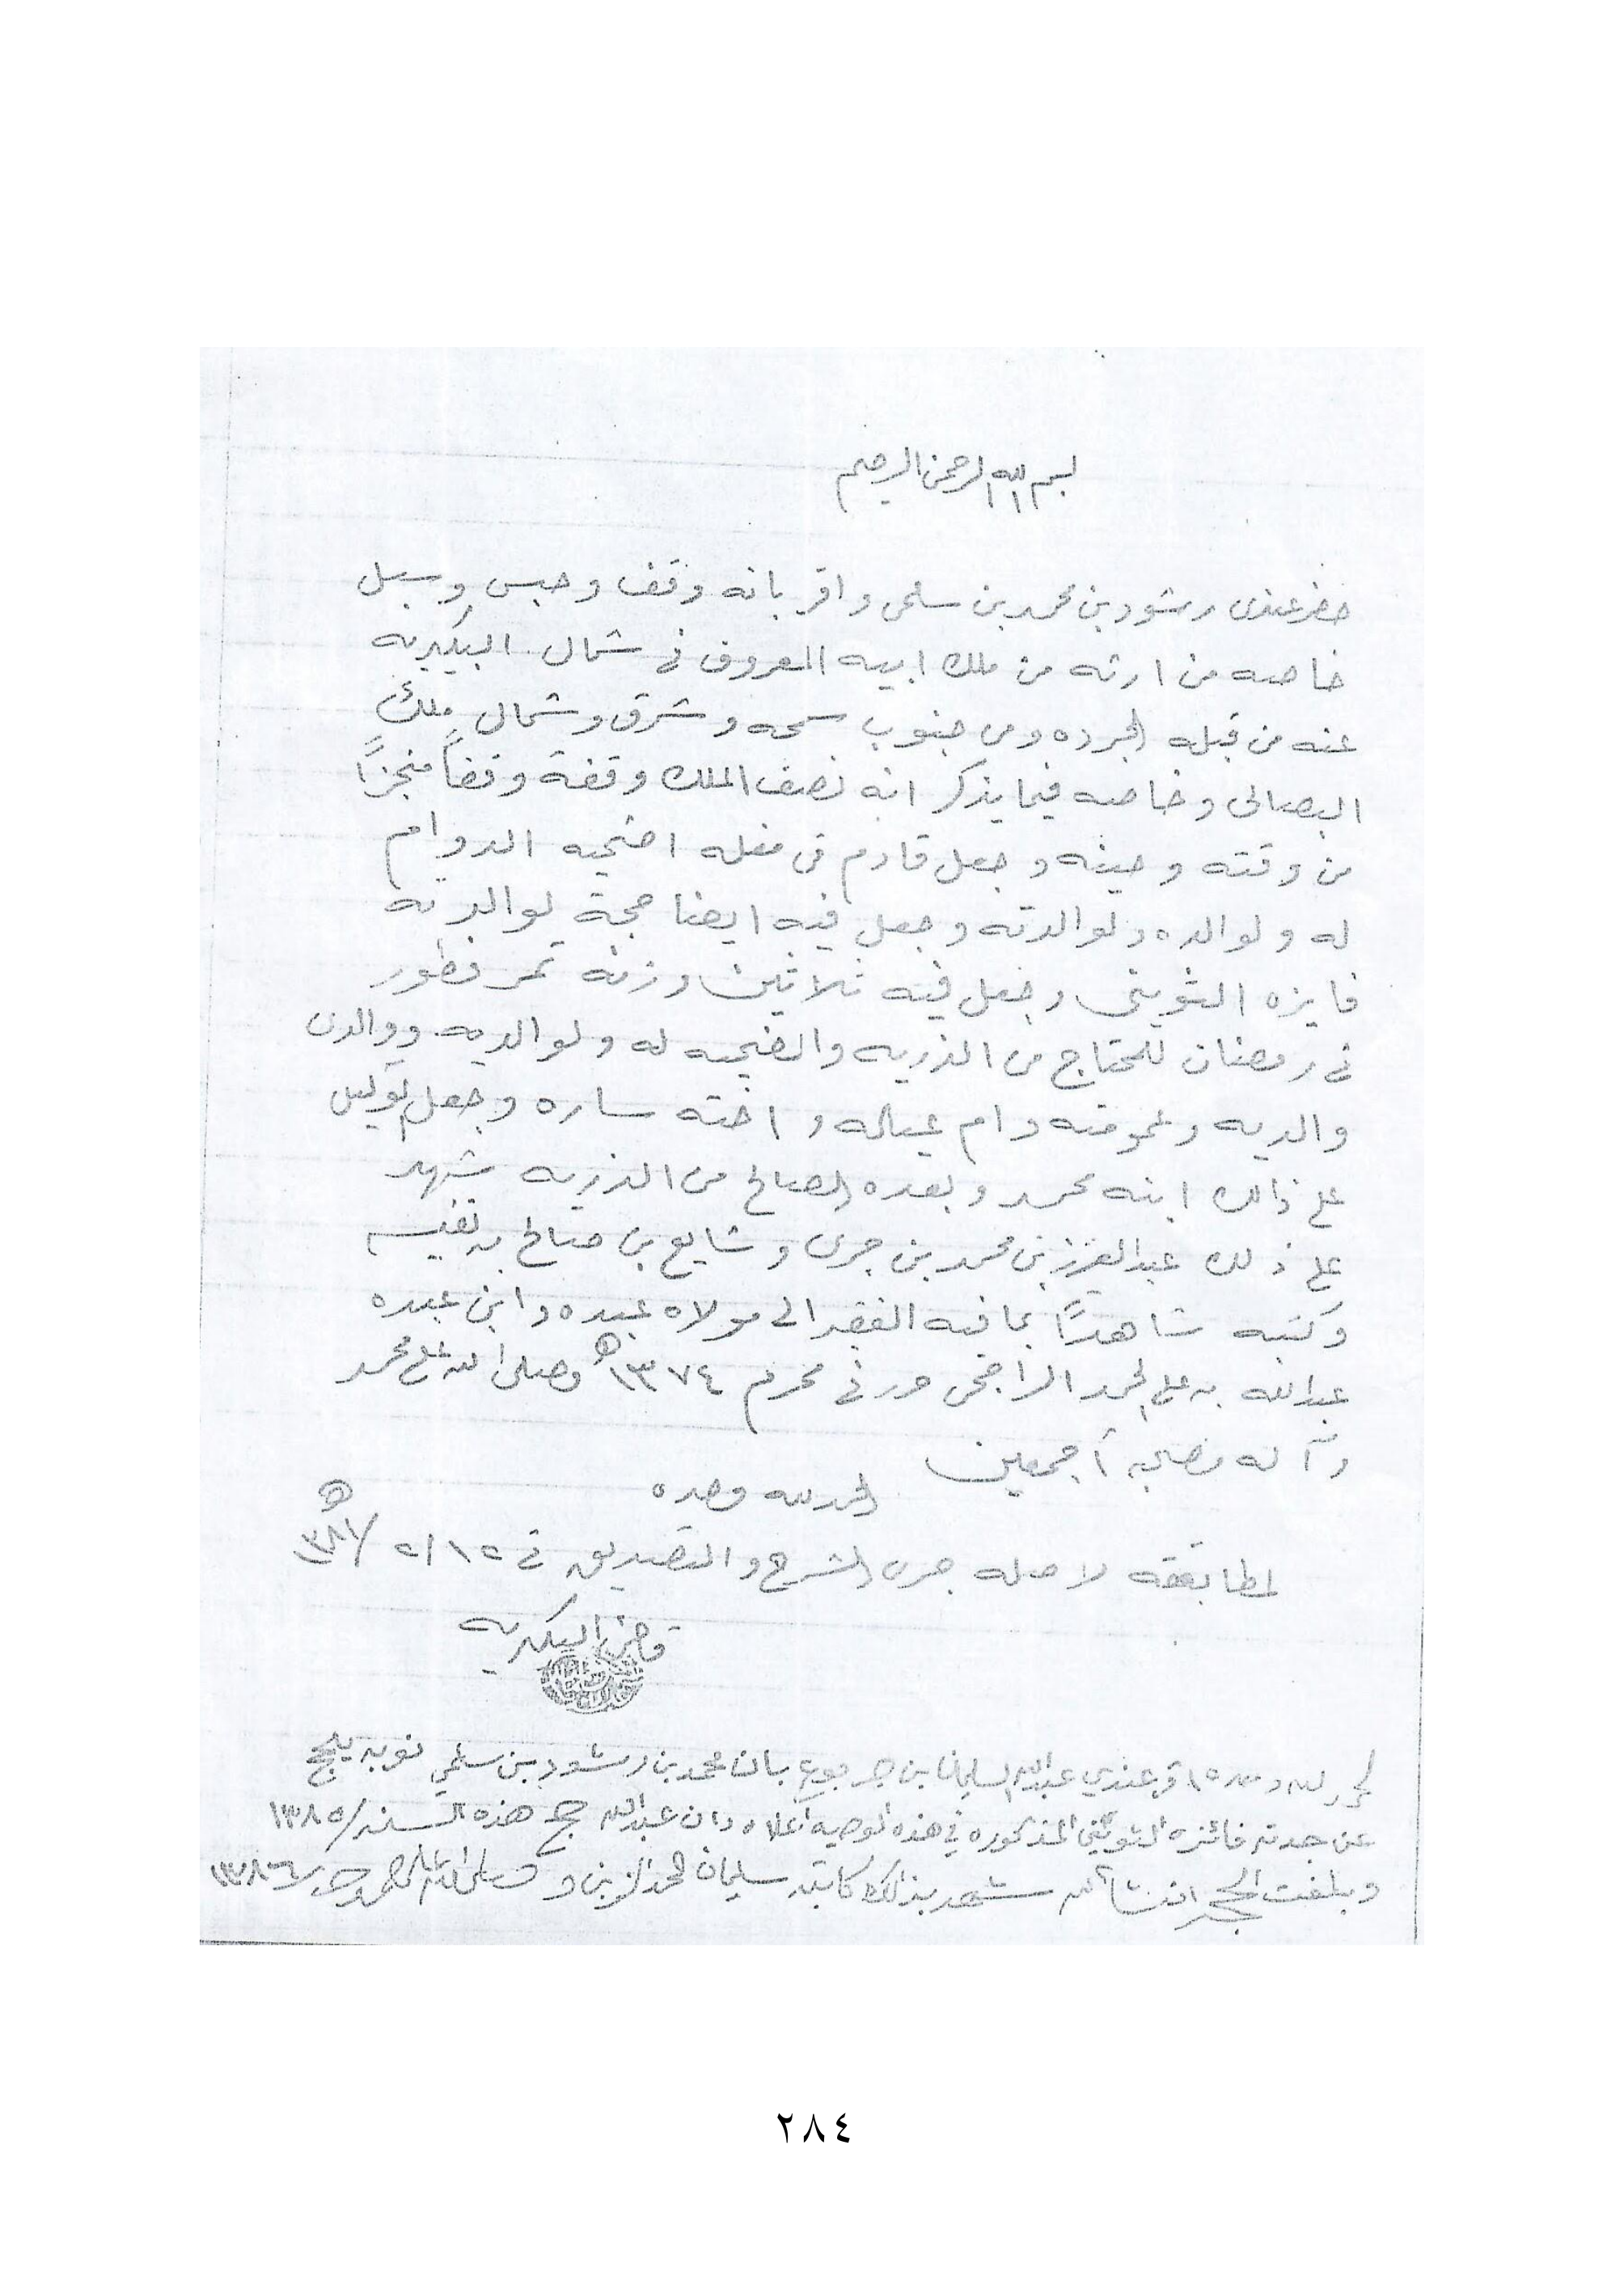 بسم الله الرحمن الرحيم
حضر عندي رشود بن محمد بن سلمى واقر بانه وقف وحبس وسبل
خاصه من ارثه من ملك ابيه المعروف في شمال البكيريه
عنه من قبله الجرده ومن جنوب سمحه وشرق وشمال ملك
البصالى وخاصه فيما يذكر انه نصف الملك وقفة وقفاً منجزاً
من وقته وحينه وجعل قادم في مغله اضحيه الدوام
له ولوالده ولوالدته وجعل فيه ايضا حجة لوالدته
فايزه الثويني وجعل فيه ثلاثين وزنه تمر فطور
في رمضان للمحتاج من الذريه والضحيه له ولوالديه ووالدى
والديه وعمومته وام عياله واخته ساره وجعل لوكيل
على ذالك ابنه محمد وبعده الصالح من الذريه شهد
على ذلك عبدالعزيز بن محمد بن جرى وشايع بن صالح بن نفيسه
وكتبه شاهداً بما فيه الفقير الى مولاه عبده وابن عبده
عبدالله بن على الحمد الراجحى حرر في محرم ١٣٧٤هـ وصلى الله على محمد
وآله وصحبه أجمعين
الحمد لله وحده
لمطابقته لاصله جرى الشرح والتصديق في ٢/١٢/ ١٣٨١هـ
قاضي البكيريه
الحمد لله وحده اقر عندي عبدالله السليمان بن جربوع بان محمد بن رشود بن سلمي نوبه يحج
عن جدته فائزه الثويني المذكوره في هذه الوصيه أعلاه وان عبدالله حج هذه السنه/١٣٨٥
وبلغت الحجه انشاء الله شهد بذالك كاتبه سليمان الحمد وصلى الله على محمد ١٣٨٦
٢٨٤